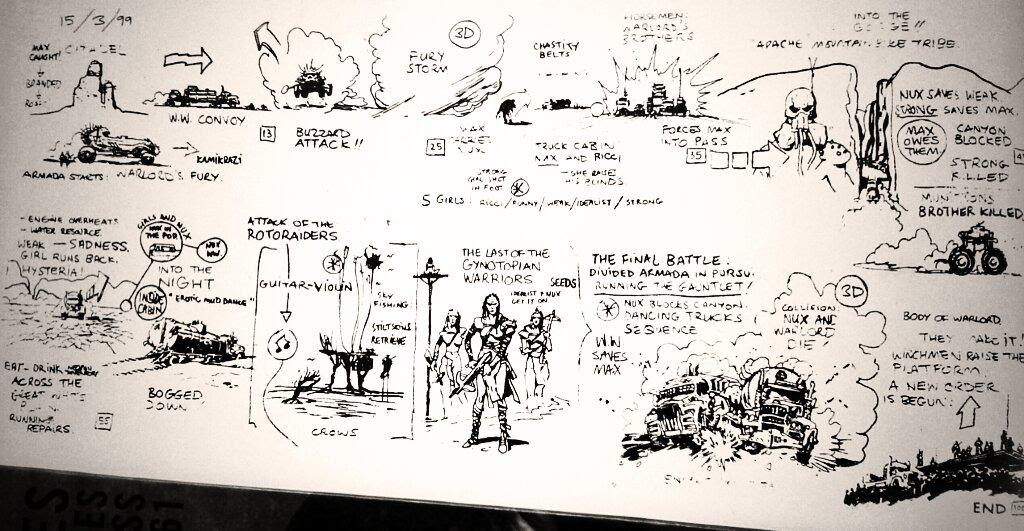 15/3/99
MAX
CAUGHT!
CITADEL
BRANDED
W.W. CONVOY
KAMIKRAZI
ARMADA STARTS: WARLORD'S FURY.
13
BUZZARD
ATTACK!!
FURY
STORM
3D
25
MAX
CHASTITY
BELTS
TRUCK CABIN
MAX AND RICCI
SHE RAISE
HIS BLINDS.
STRONG
GIRL SHOT
IN FOOT
5 GIRLS: RICCI/FUNNY/WEAK/IDEALIST/STRONG
HORSEMEN:
WARLORD'S
BROTHERS
FORCES MAX
INTO PASS
35
INTO THE
GORGE!!
APACHE MOUNTAIN BIKE TRIBE.
NUX SAVES WEAK
STRONG SAVES MAX.
MAX
OWES
THEM
CANYON
BLOCKED
STRONG
KILLED
MUNITIONS
BROTHER KILLED
- ENGINE OVERHEATS
- WATER RESOURCE.
WEAK — SADNESS.
GIRL RUNS BACK.
HYSTERIA!
GIRLS AND NUX
MAX IN
THE POD
NUX
WW.
INTO THE
NIGHT
INSIDE
CABIN
"EROTIC MUD DANCE"
EAT-DRINK
ACROSS THE
GREAT WHITE
RUNNING
REPAIRS.
55
BOGGED
DOWN
ATTACK OF THE
ROTORAIDERS
GUITAR-VIOLIN
SKY
FISHING
STILTSONS
RETRIEVE
CROWS
THE LAST OF THE
GYNOTOPIAN
WARRIORS
SEEDS
IDEALIST & NUX
GET IT ON
THE FINAL BATTLE:
DIVIDED ARMADA IN PURSU
RUNNING THE GAUNTLET!
NUX BLOCKS CANYON:
DANCING TRUCKS
SEQUENCE
W.W
SAVES
MAX
COLLISION:
NUX AND
WARLORD
DIE
3D
BODY OF WARLORD.
THEY MAKE IT!
WINCHMEN RAISE THE
PLATFORM
A NEW ORDER
IS BEGUN:
END